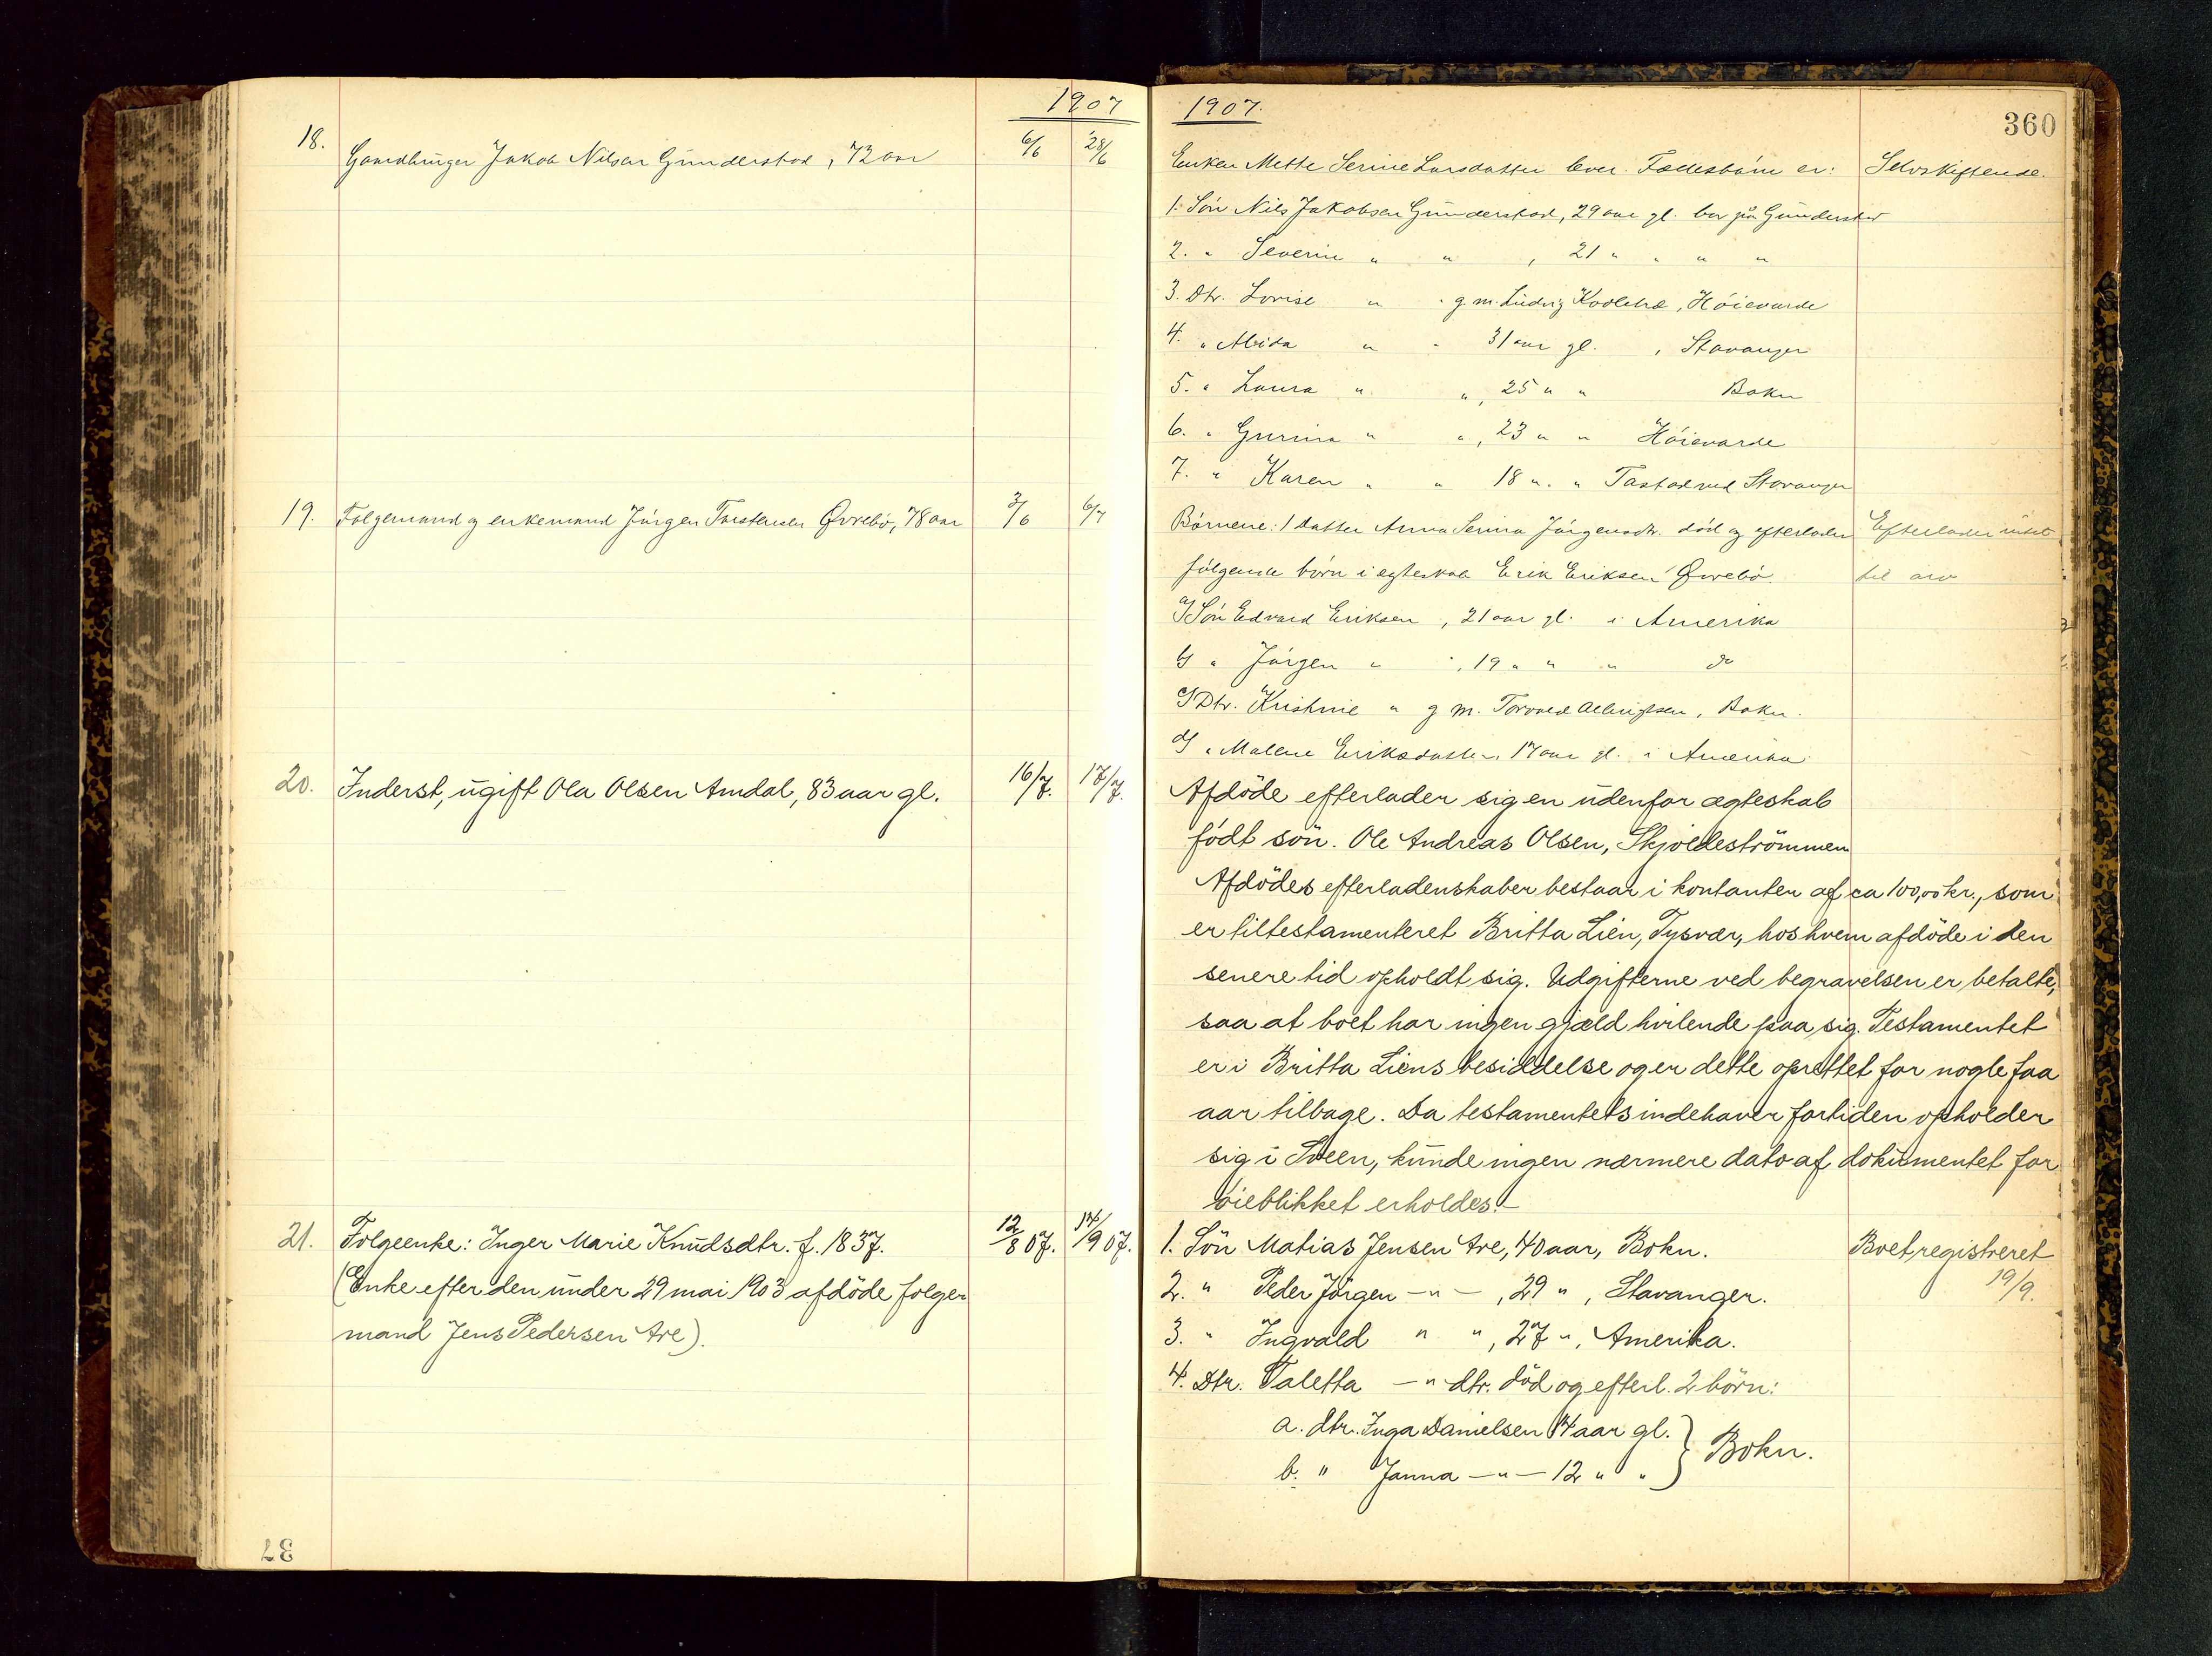 1907
18. Gaardbruger Jakob Nilsen Gunderstad, 72 aar 6/6 28/6
19. Folgemand og enkemand Jörgen Torstensen Øvrebö, 78 aar 3/6 6/7
20. Inderst, ugift Ola Olsen Amdal, 83 aar gl. 16/7. 17/7.
21. Folgeenke: Inger Marie Knudsdtr. f. 1837. 12/8 07. 14/9 07.
(Enke efter den under 29 mai 1903 afdöde folge
mand Jens Pedersen Are).
37
1907.
360
Enken Mette Serine Larsdatter lever. Fællesbörn er: Selvskiftende.
1. Sön Nils Jakobsen Gunderstad, 29 aar gl. bor paa Gunderstad
2. " Severin " " , 21 " " " "
3. Dtr. Lovise " " g. m. Ludvig Høievarde
4. " Alida " " 31 aar gl. , Stavanger
5. " Laura " " , 25 " " Bokn
6. " Gurina " " , 23 " " Höievarde
7. " Karen " " 18 " " Tastad ved Stavanger
Börnene: 1 datter Anna Serina Jörgensdtr. död og efterlader Efterlader intet
fölgende börn i egteskab Erik Eriksen Øvrebö til arv
a) Sön Edvard Eriksen , 21 aar gl. i Amerika
b) " Jörgen " " , 19 " " " do
c) Dtr. Kristine " g. m. Torvald Bokn.
d) " Malene Eriksdatter, 17 aar gl. i Amerika.
Afdöde efterlader sig en udenfor ægteskab
födt sön. Ole Andreas Olsen, Skjoldeströmmen
Afdödes efterladenskaber bestaar i kontanter af ca 100,00 kr., som
er tiltestamenteret Britta Lien, Tysvær, hos hvem afdöde i den
senere tid opholdt sig. Udgifterne ved begravelsen er betalte,
saa at boet har ingen gjæld hvilende paa sig. Testamentet
er i Britta Liens besiddelse og er dette oprettet for nogle faa
aar tilbage. Da testamentets indehaver fortiden opholder
sig i Sveen, kunde ingen nærmere dato af dokumentet for
öieblikket erholdes.
1. Sön Matias Jensen Are, 40 aar, Bokn. Boet registreret
2. " Peder Jörgen - " - , 29 " , Stavanger. 19/9.
3. " Ingvald " " , 27 " , Amerika.
4. Dtr. Taletta - " dtr. död og efterl. 2 börn:
a. dtr. Inga Danielsen 14 aar gl. } Bokn.
b. " Janna - " - 12 " "